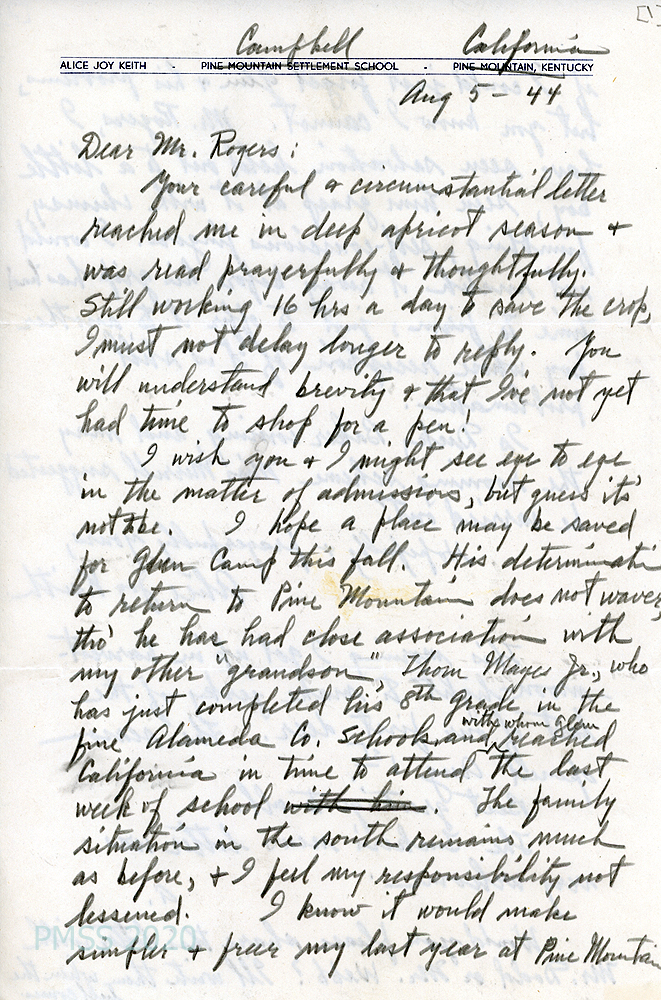 [1]
Campbell California
ALICE JOY KEITH - PINE MOUNTAIN SETTLEMENT SCHOOL - PINE MOUNTAIN, KENTUCKY
Aug 5 - 44
Dear Mr. Rogers:
Your careful & circumstantial letter
reached me in deep apricot season &
was read prayerfully & thoughtfully.
Still working 16 hrs a day to save the crop,
I must not delay longer to reply. You
will understand brevity & that I've not yet
had time to shop for a pen!
I wish you & I might see eye to eye
in the matter of admissions, but guess it's
not to be. I hope a place may be saved
for Glen Camp this fall. His determinatio
to return to Pine Mountain does not waver,
tho' he has had close association with
my other "grandson", Thom Mayes Jr., who
has just completed his 8th grade in the
with whom Glen
fine Alameda Co. schools and reached
California in time to attend the last
week of school with him. The family
situation in the south remains much
as before, & I feel my responsibility not
lessened. I know it would make
simpler & freer my last year at Pine Mountain
PMSS 2020